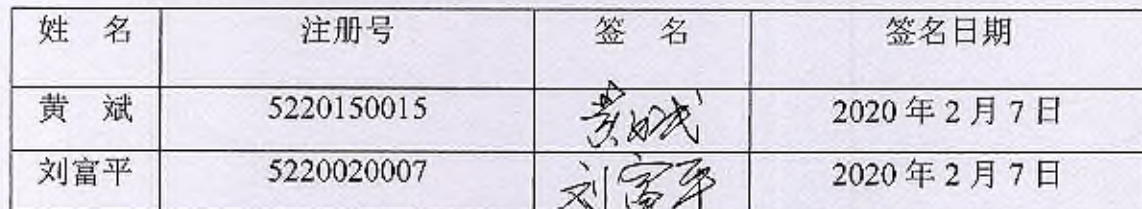 姓 名 注册号 签 名 签名日期
黄 斌 5220150015 黄斌 2020年2月7日
刘富平 5220020007 刘富平 2020年2月7日